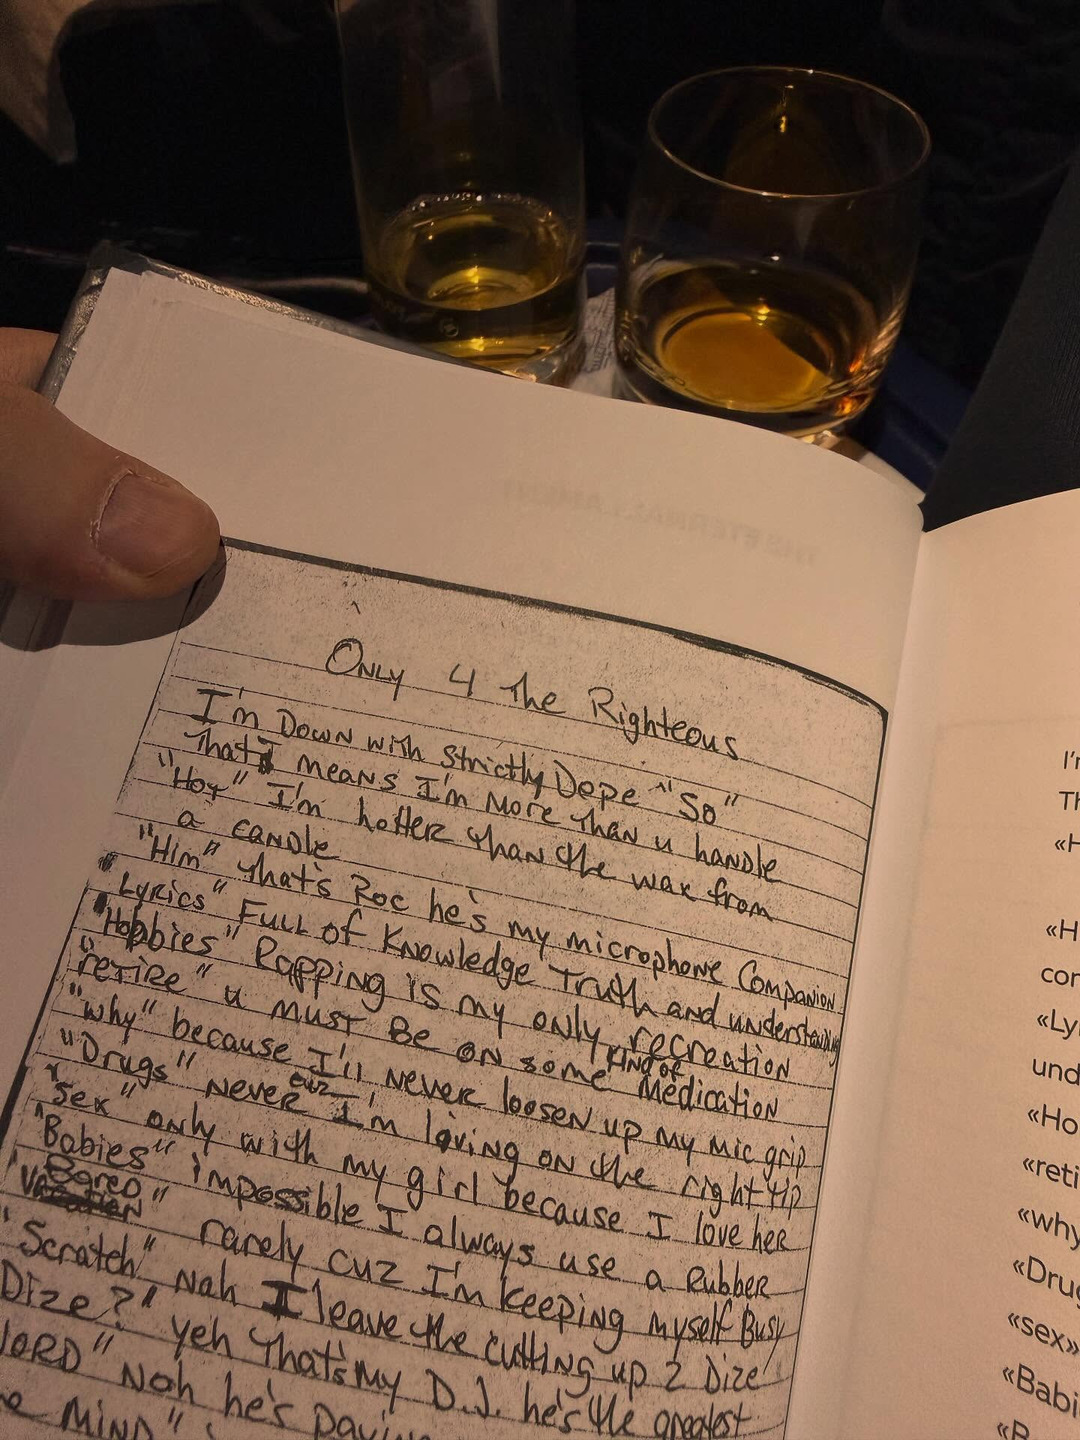 THE ETERNAL LAMENT
Only 4 The Righteous
I'm Down with Strictly Dope "So"
That means I'm More Than u handle
"Hot" I'm hotter than the wax from
a candle
"Him" That's Roc he's my microphone Companion
"Lyrics" Full of Knowledge Truth and understanding
"Hobbies" Rapping is my only recreation
"retire" u must Be on some Kind of Medication
"why" because I'll never loosen up my mic grip
"Drugs" never cuz I'm living on the right tip
"Sex" only with my girl because I love her
"Babies" impossible I always use a Rubber
"Bored" rarely cuz I'm keeping myself Busy
"Scratch" Nah I leave the cutting up 2 Dize
Dize?" yeh That's my D.J. he's the greatest
LORD" Nah he's
MIND"
I'
Th
«H
«H
cor
«Ly
und
«Ho
«reti
«why
«Drug
«sex»
«Babi
«B